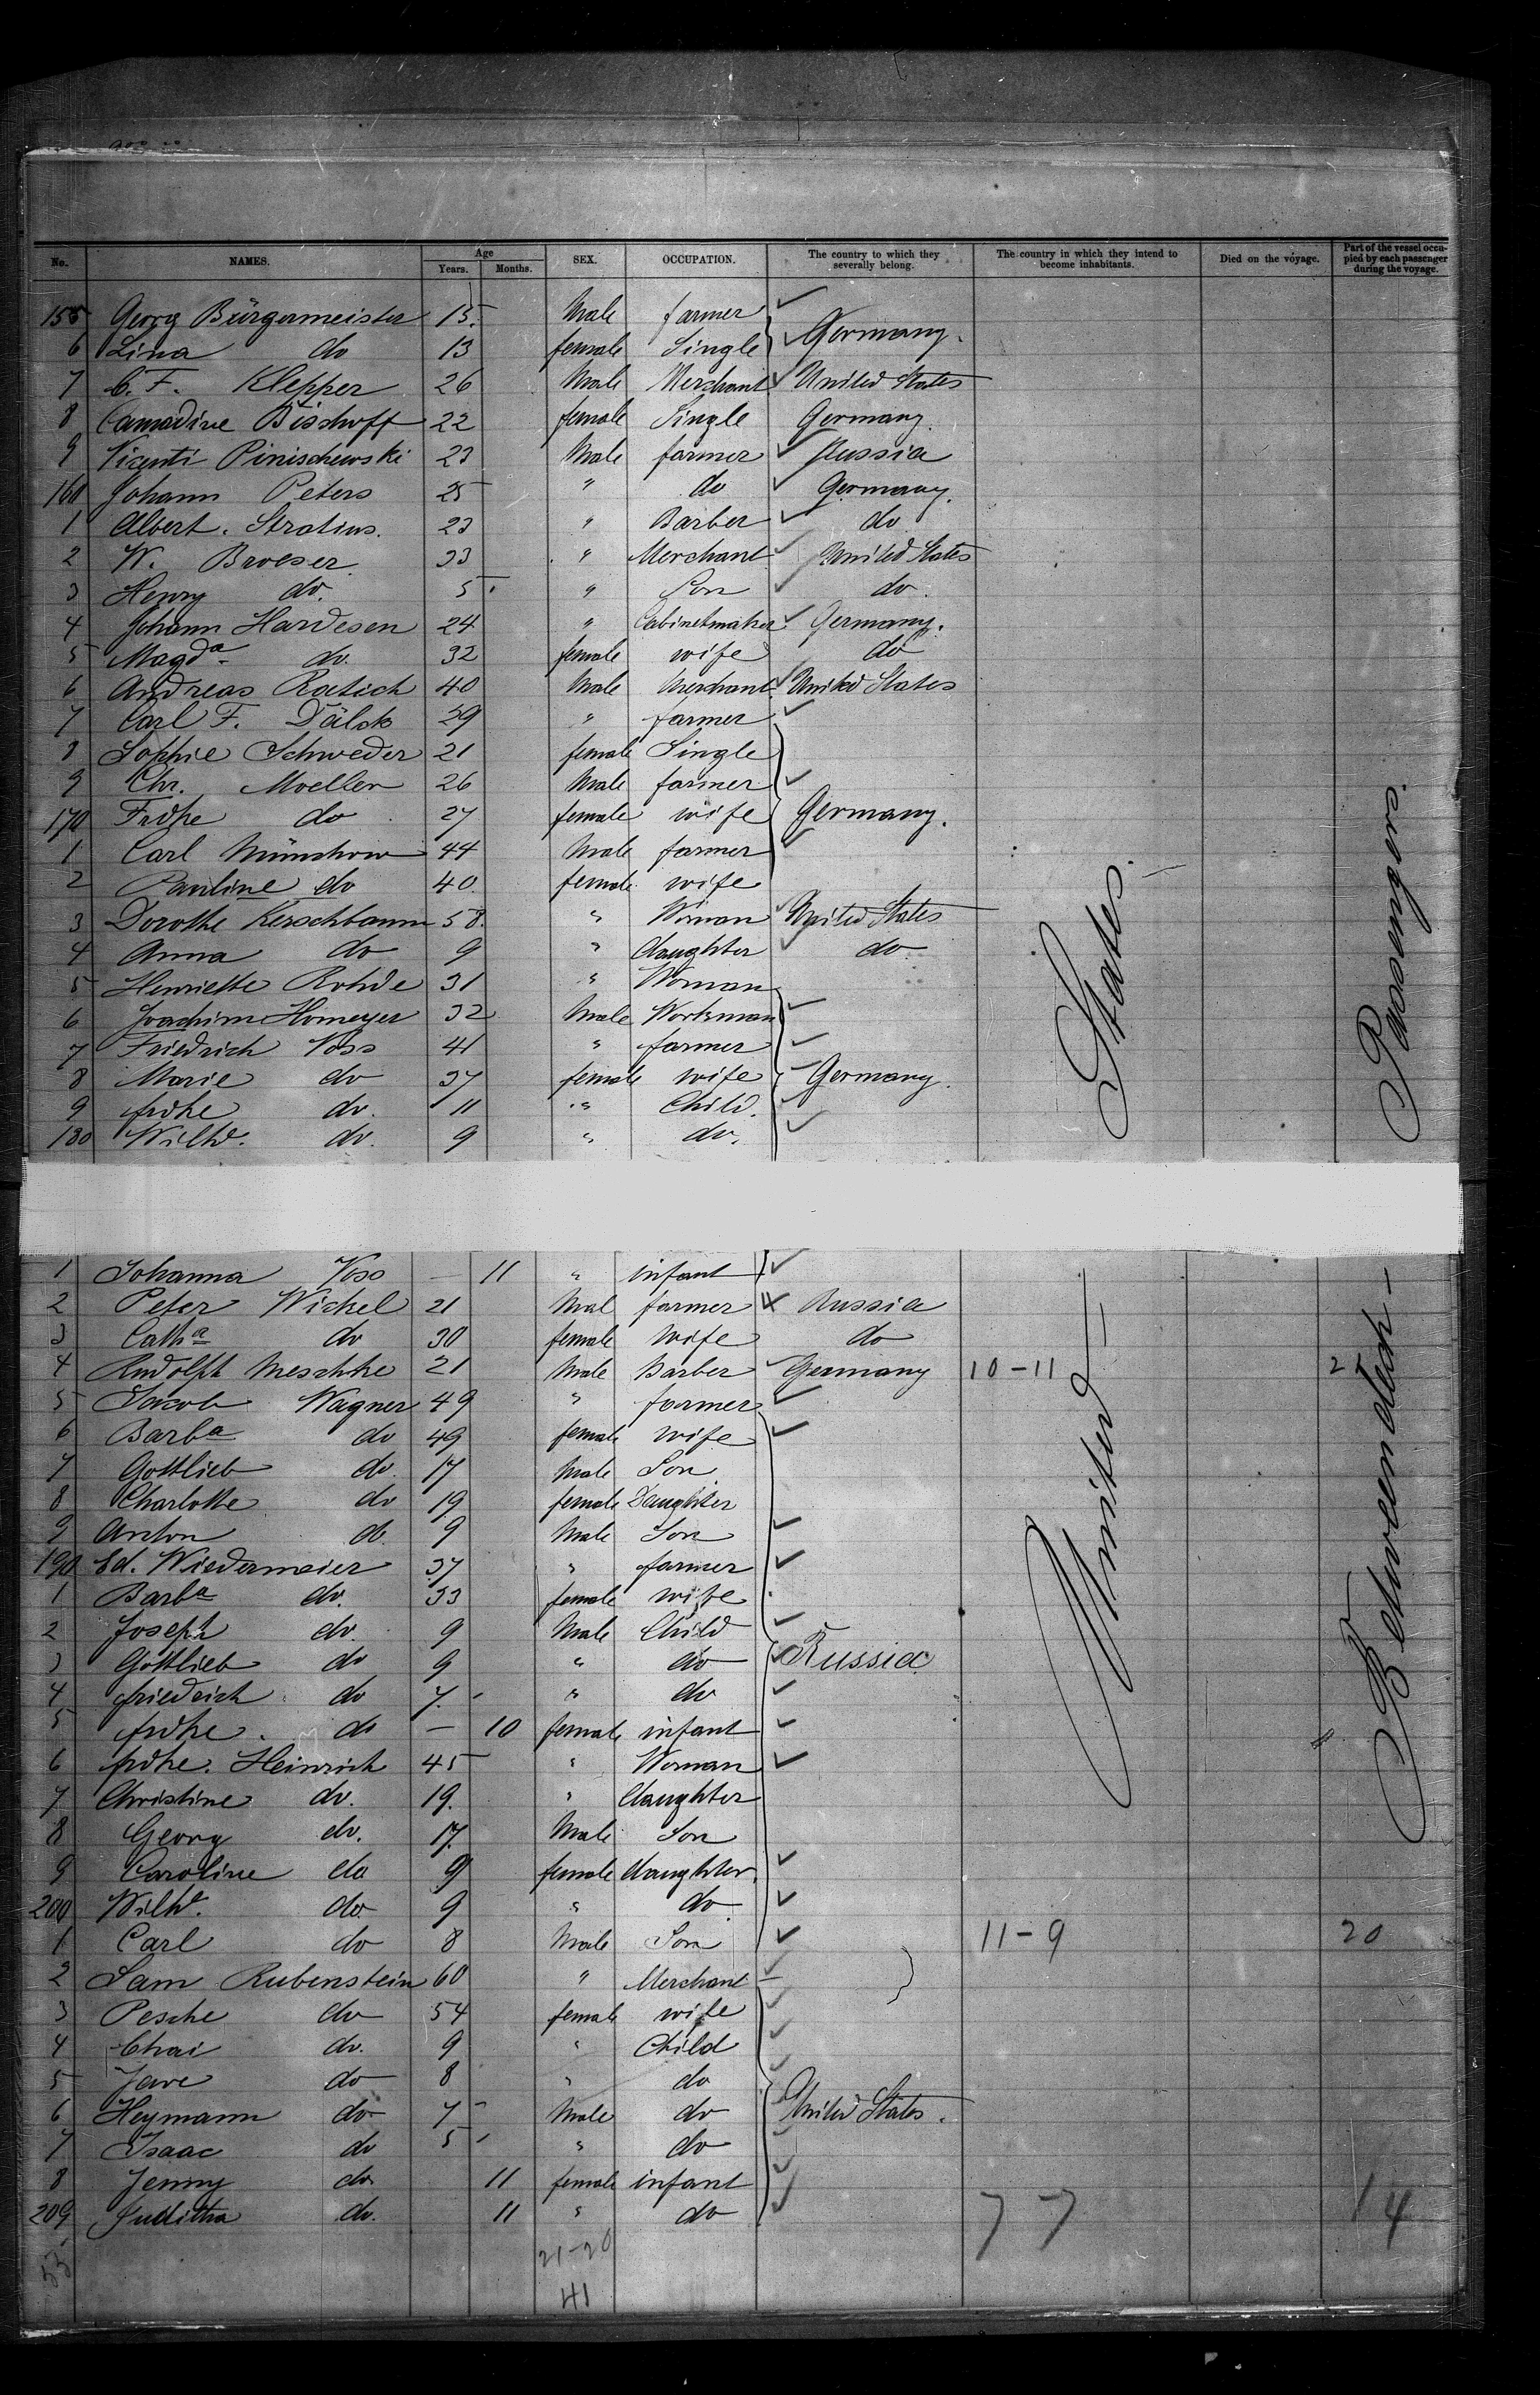 No. NAMES. Age Years. Months. SEX. OCCUPATION. The country to which they severally belong. The country in which they intend to become inhabitants. Died on the voyage. Part of the vessel occupied by each passenger during the voyage.
155 Georg Bürgermeister 15. Male farmer
6 Lina do 13 female Single Germany.
7 C. F. Klepper 26 Male Merchant United States
8 Bischoff 22 female Single Germany.
9 Vicenti Pinischewski 23 Male farmer Russia
160 Johann Peters 25 " do Germany.
1 Albert. Stratius. 23 " Barber do
2 W. Broeser 33 " Merchant United States
3 Henry do. 5 " Son do.
4 Johann Hardesen 24 " Cabinetmaker Germany.
5 Magda do. 32 female wife do
6 Andreas Ratich 40 Male Merchant United States
7 Carl F. 29 " farmer
8 Sophie Schweder 21 female Single
9 Chr. Moeller 26 Male farmer
170 Frdke do 27 female wife Germany.
1 Carl Münchow 44 Male farmer
2 Pauline do 40. female wife
3 Dorothe Kerschbaum 58. " Woman United States
4 Anna do 9 " daughter do
5 Henriette Rohde 31 " Woman
6 Joachim Homeyer 32 Male Workman
7 Friedrich Voss 41 " farmer
8 Marie do 37 female wife Germany.
9 frdke do. 11 " Child.
180 Wilhe. do. 9 " do.
1 Johanna Voss — 11 " infant
2 Peter Wickel 21 Mal farmer Russia
3 Catha do 30 female wife do
4 Rudolph Meschke 21 Male Barber Germany 10-11 2
5 Jacob Wagner 49 " farmer
6 Barba do 49 female wife
7 Gottlieb do. 17 Male Son
8 Charlotte do 19 female Daughter
9 Anton do 9 Male Son
190 Ed. Wiedermeier 37 " farmer
1 Barba do. 33 female wife
2 Joseph do. 9 Male Child
3 Gottlieb do 9 " do Russia
4 friedrich do 7. " do
5 frdke. do — 10 female infant
6 frdke. Heinrich 45 " Woman
7 Christine do. 19. " daughter
8 Georg do. 17. Male Son
9 Caroline do 9 female daughter.
200 Wilhe. do. 9 " do.
1 Carl do 8 Male Son 11-9 20
2 Sam Rubenstein 60 " Merchant
3 Pesche do 54 female wife
4 Chai do. 9 " Child
5 do 8 " do
6 Heymann do 7 Male do United States.
7 Isaac do 5 " do
8 Jenny do. 11 female infant
209 Juditha do. 11 " do 77 14
53 21-20
41
United States.
Betweendeck Passengers.